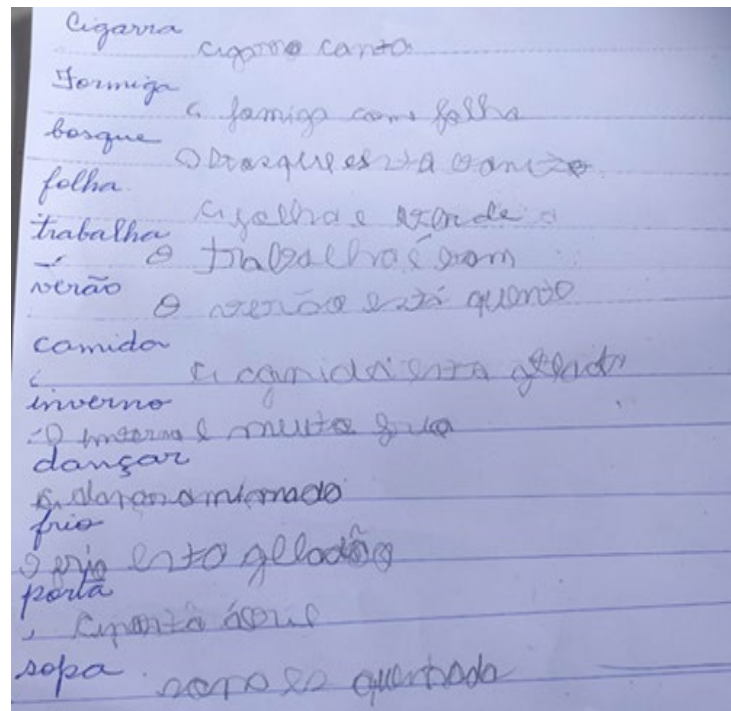 Cigarra
cigarra canta
Formiga
a famiga come folha
bosque
O bosque está
folha
a folha e verde
trabalha
O trabalha é bom
verão
O verão está quente
comida
a comida esta gelad
inverno
O inverno e muito frio
dançar
a
frio
O frio esta gelado
porta
a porta
sopa
sopa es quentada